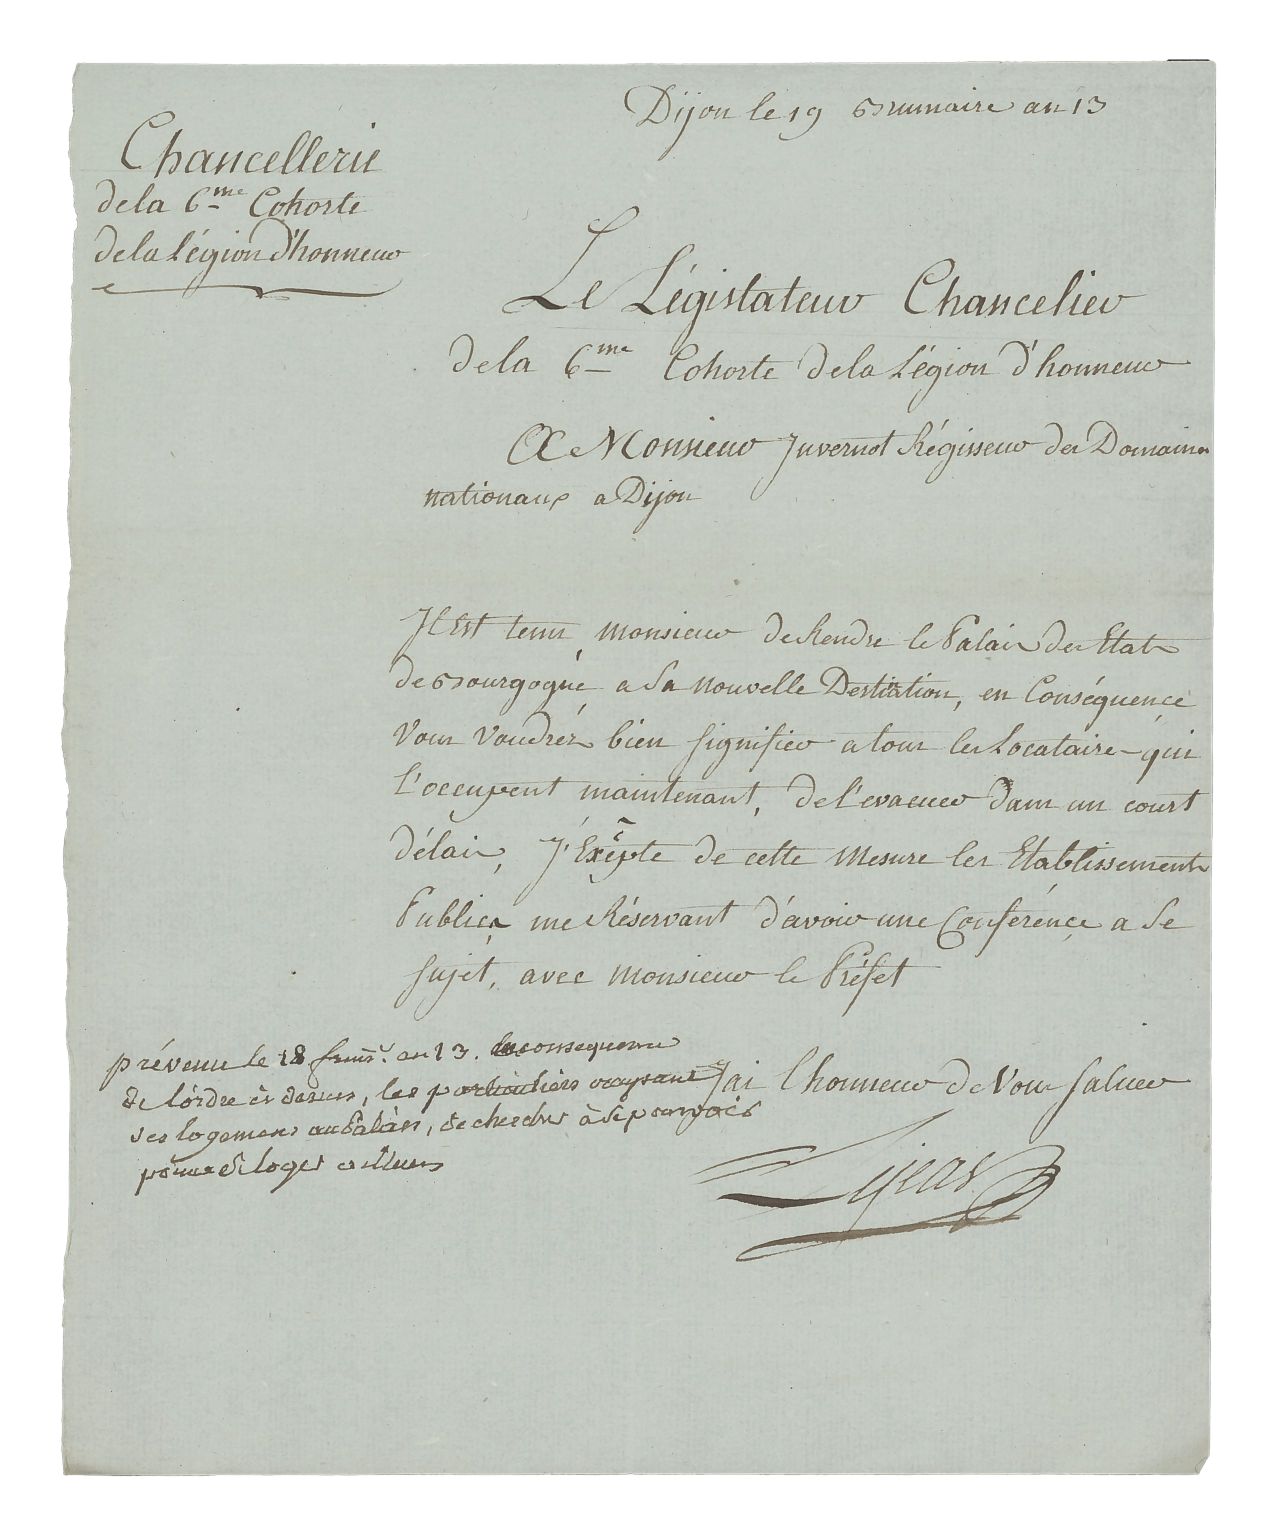 Dijon le 19 Brumaire an 13
Chancellerie
de la 6me Cohorte
de la Légion d'honneur
Le Législateur Chancelier
de la 6me Cohorte de la Légion d'honneur
A Monsieur Juvernot Régisseur des Domaines
nationaux a Dijon
Il Est tems, monsieur de Rendre le Palais des Etats
de Bourgogne, a Sa nouvelle Destination, en Conséquence
Vous Voudréz bien signifier a tous les Locataires qui
l'occupent maintenant, de l'evacuer dans un court
délais, J'Exêpte de cette mesure les Etablissements
Publics, me Réservant d'avoir une Conférence a Se
sujet, avec monsieur le Préfet
J'ai l'honneur de Vous saluer
prévenu le 18 frim.e an 13. consequence
de l'ordre ci dessus, les particuliers ayant
ses logemens au Palais, de chercher à se pourvoir
pour se loger ailleurs
Lejeas